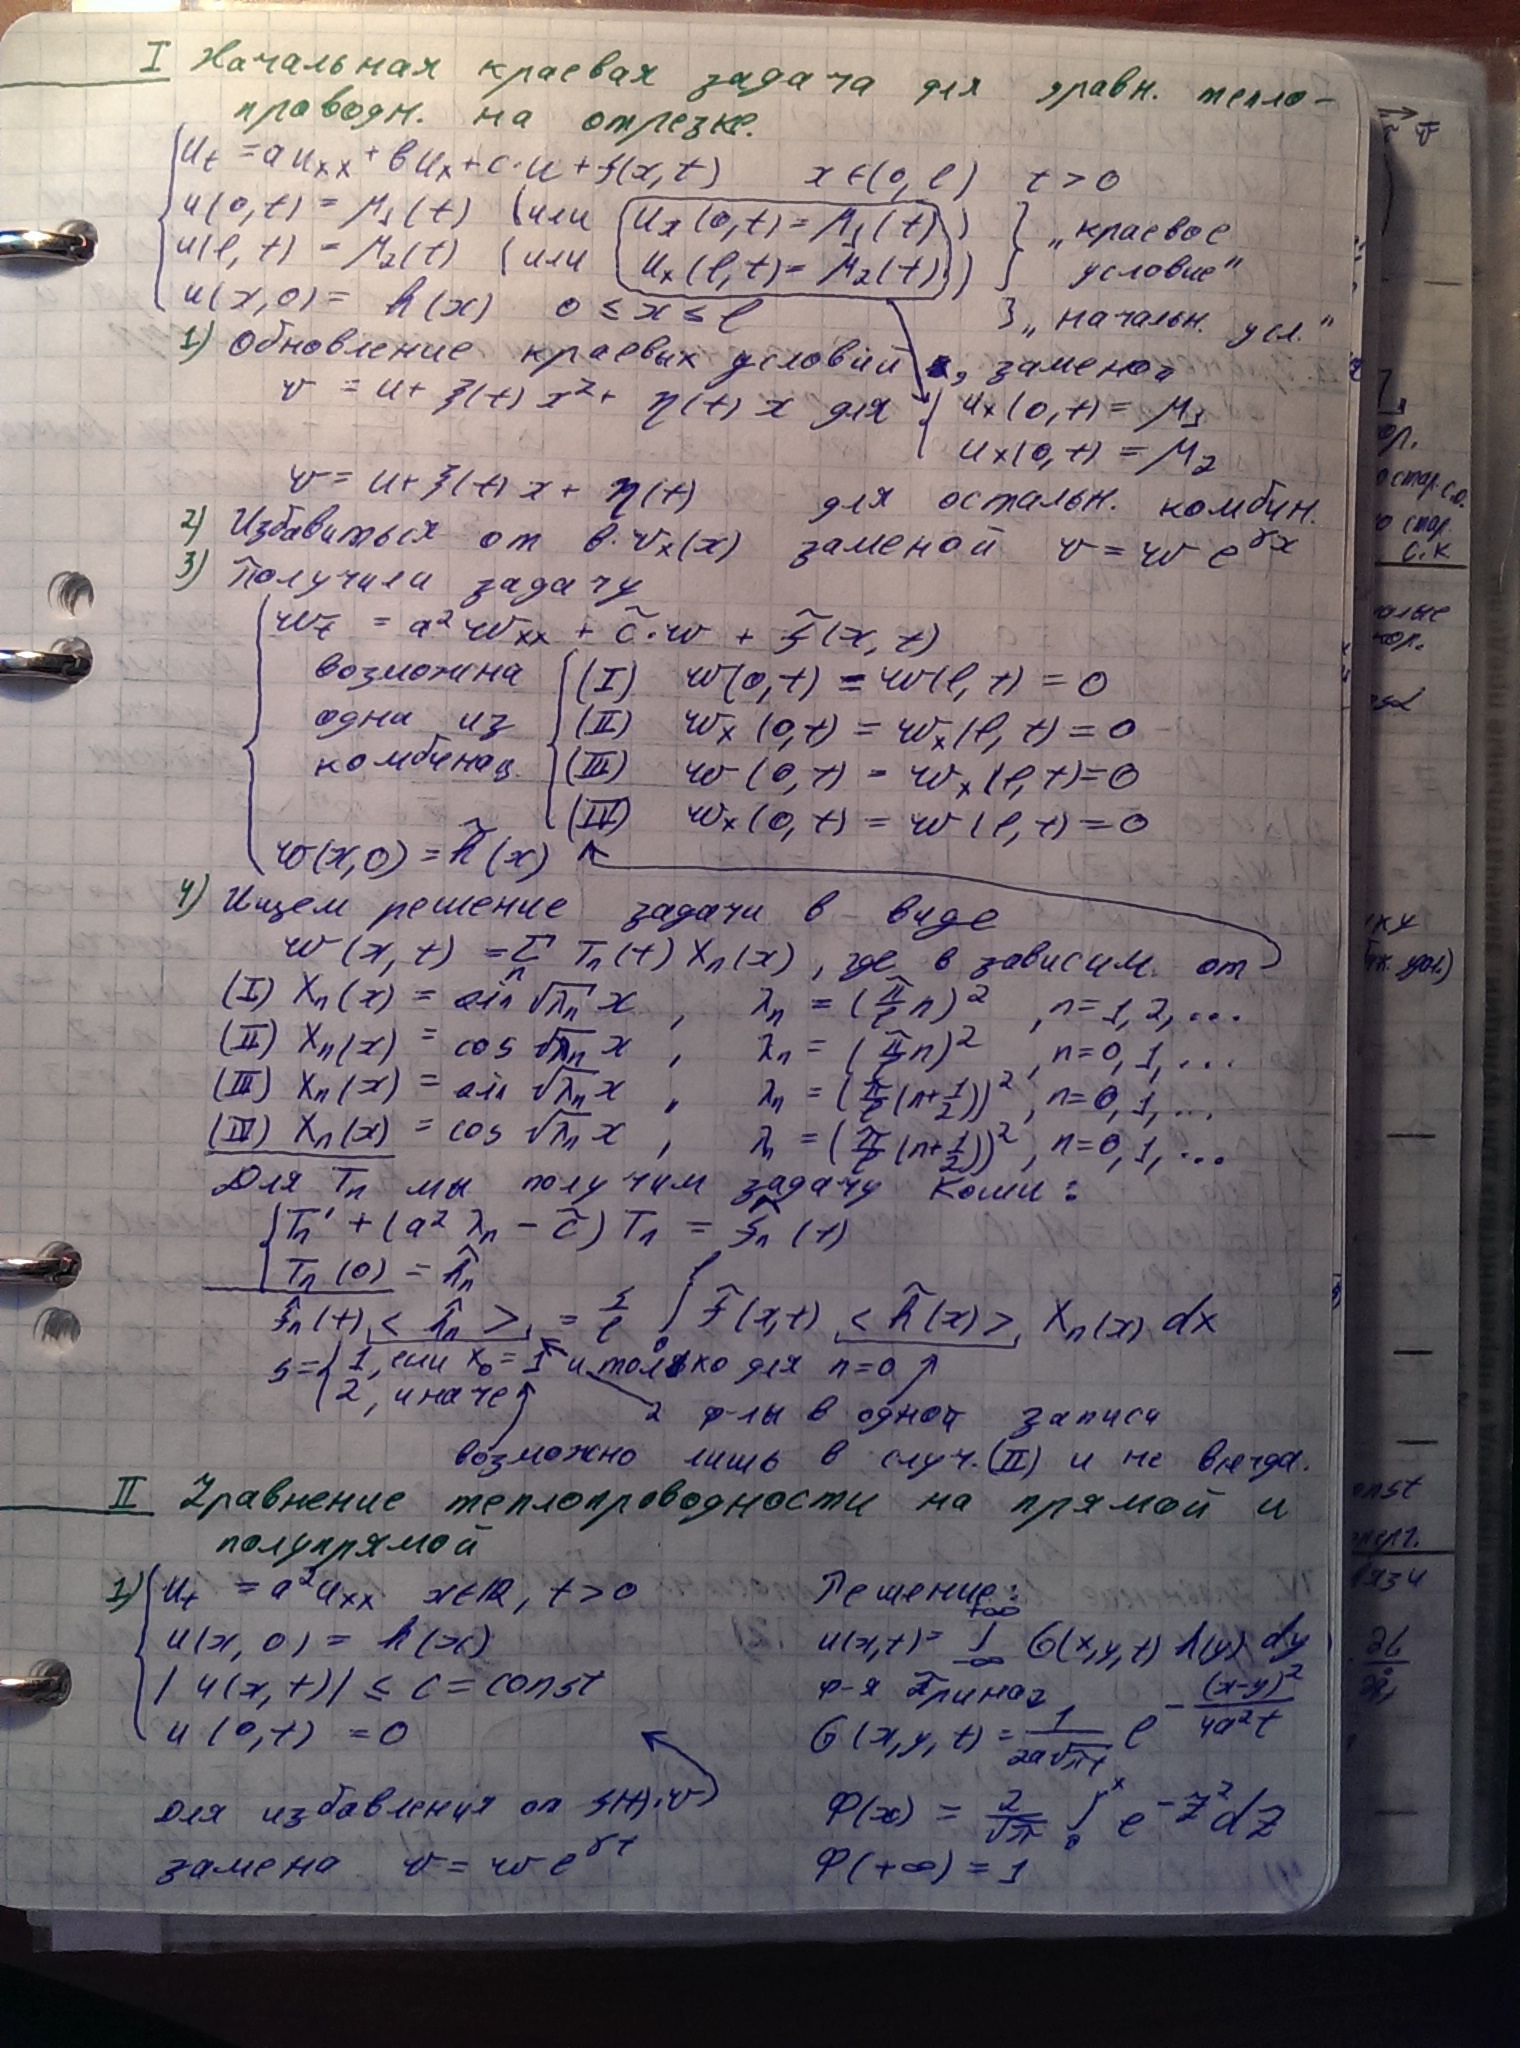 I Начальная краевая задача для уравн. тепло-
проводн. на отрезке.
u_t = a u_xx + b u_x + c·u + f(x,t) x∈(0,l) t>0
u(0,t) = μ₁(t) (или u_x(0,t) = μ₁(t)) } „краевое
u(l,t) = μ₂(t) (или u_x(l,t) = μ₂(t)) } условие“
u(x,0) = h(x) 0 ≤ x ≤ l } „начальн. усл.“
1) Обновление краевых условий, замена
v = u + ξ(t)x² + η(t)x для { u_x(0,t) = μ₁
u_x(0,t) = μ₂
v = u + ξ(t)x + η(t) для остальн. комбин.
2) Избавиться от b·v_x(x) заменой v = w e^{γx}
3) Получили задачу
w_t = a² w_xx + c̃·w + f̃(x,t)
возможна (I) w(0,t) = w(l,t) = 0
одна из (II) w_x(0,t) = w_x(l,t) = 0
комбинац. (III) w(0,t) = w_x(l,t) = 0
(IV) w_x(0,t) = w(l,t) = 0
w(x,0) = h̃(x)
4) Ищем решение задачи в виде
w(x,t) = Σ_n T_n(t) X_n(x), где в зависим. от
(I) X_n(x) = sin √λ_n x, λ_n = (π/l n)², n=1,2,...
(II) X_n(x) = cos √λ_n x, λ_n = (π/l n)², n=0,1,...
(III) X_n(x) = sin √λ_n x, λ_n = (π/l (n+1/2))², n=0,1,...
(IV) X_n(x) = cos √λ_n x, λ_n = (π/l (n+1/2))², n=0,1,...
Для T_n мы получим задачу Коши:
T_n' + (a² λ_n - c̃) T_n = f̂_n(t)
T_n(0) = ĥ_n
f̂_n(t) < ĥ_n > = s/l ∫₀^l f̃(x,t) < h̃(x) > X_n(x) dx
s = { 1, если X₀ = 1 и только для n=0
2, иначе 2 ф-лы в одной записи
возможно лишь в случ. (II) и не всегда.
II Уравнение теплопроводности на прямой и
полупрямой
1) u_t = a² u_xx x∈ℝ, t>0 Решение:
u(x,0) = h(x) u(x,t) = ∫_{-∞}^{+∞} G(x,y,t) h(y) dy
|u(x,t)| ≤ c = const ф-я Грина
u(0,t) = 0 G(x,y,t) = 1/(2a√(πt)) e^{-(x-y)²/(4a²t)}
Для избавления от f(t)·v Φ(x) = 2/√π ∫₀^x e^{-z²} dz
замена v = w e^{γt} Φ(+∞) = 1
о стар. с.о.
о стар.
с.к